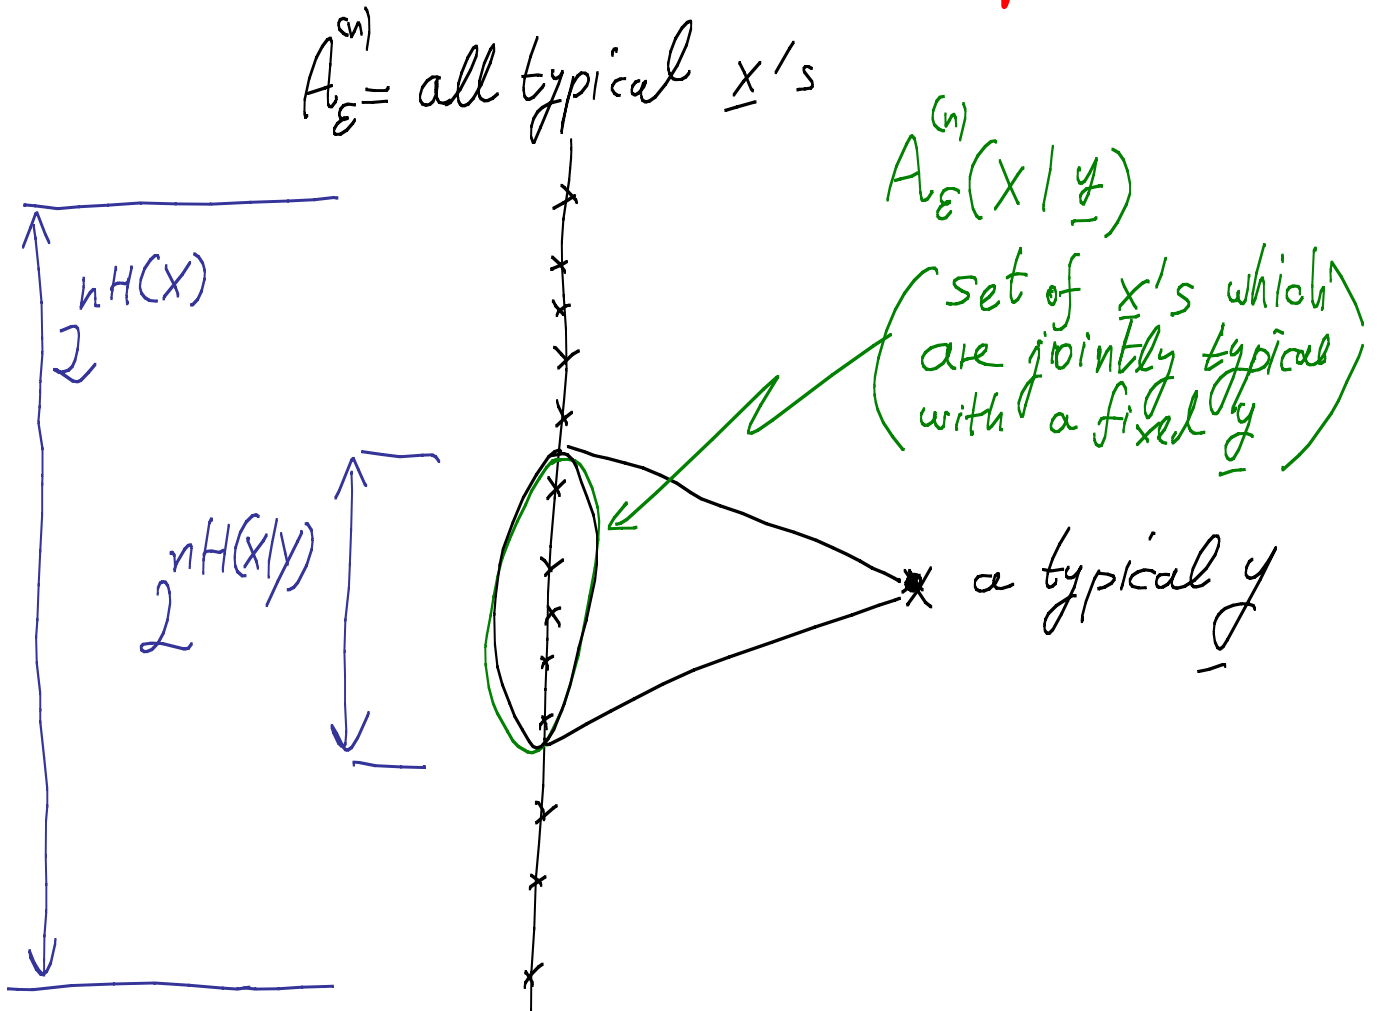 A_ε^(n) = all typical x's
A_ε^(n)(X | y)
(set of x's which
are jointly typical
with a fixed y)
2^nH(X)
2^nH(X|Y)
a typical y